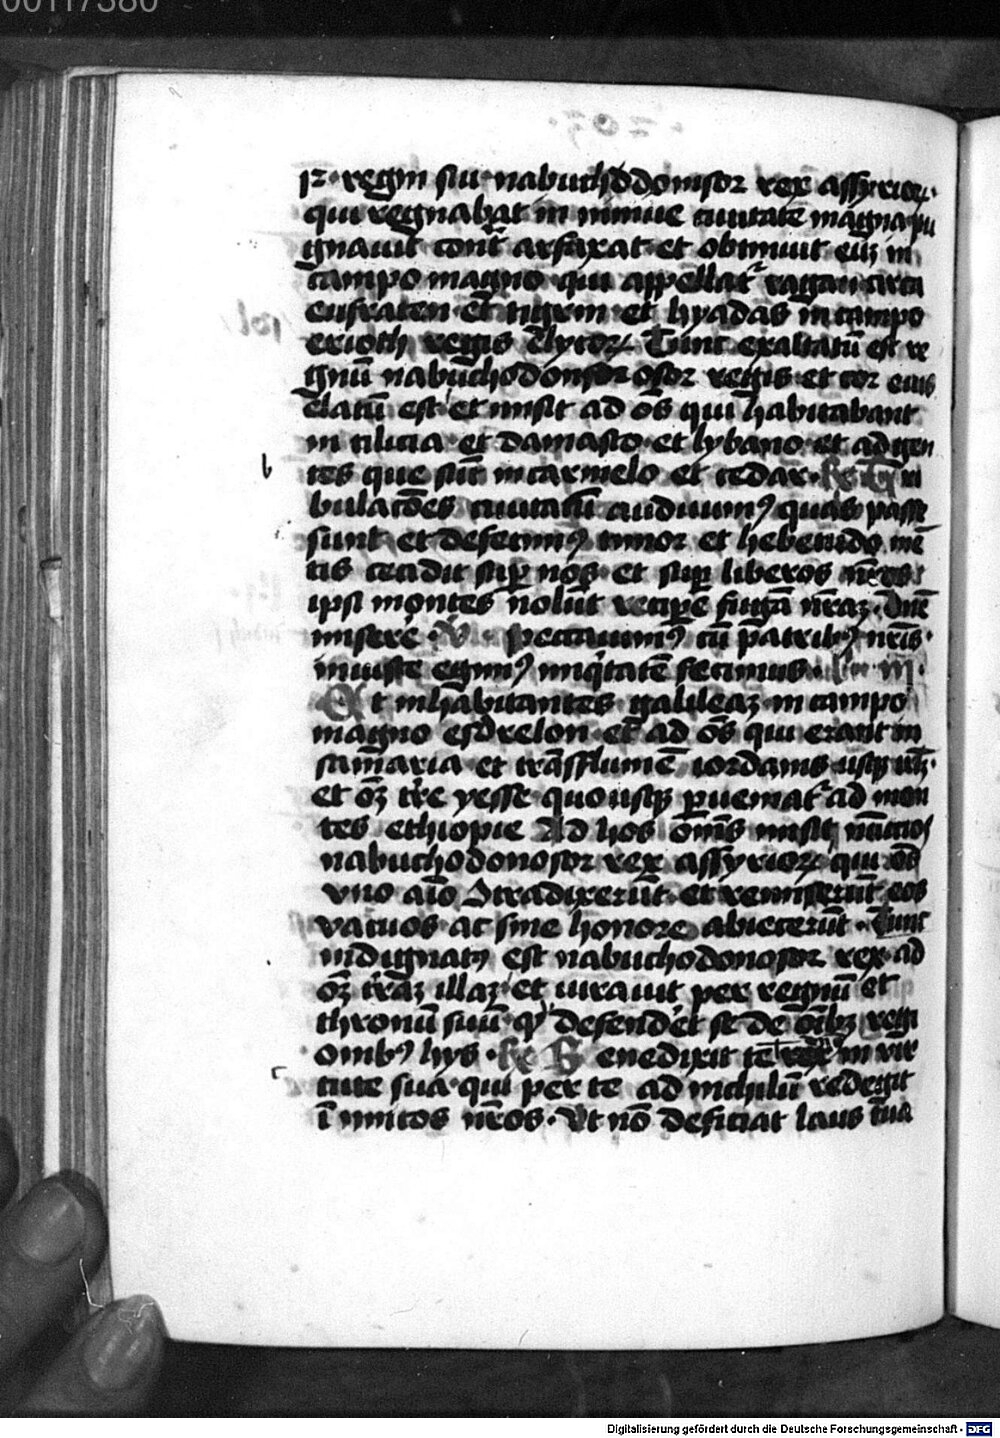 00117380
12 · regni sui · nabuchodonosor rex assyrioꝝ ·
qui regnabat in niniue ciuitate magna pu
gnauit cont̄ arfaxat et obtinuit eūz in
campo magno qui appellat᷑ ragau circa
eufraten et̄ tigrim et hyadas in campo
erioth regis elycoꝝ Tunc exaltatū est re
gnū nabuchodonosor regis et cor eius
elatū est et misit ad oēs qui habitabant
in cilicia et damasco et lybano et ad gen
b
tes que sūt in carmelo et cedar · R̄e Tri
bulatōes ciuitatū audiuimꝰ quas passe
sunt et defecimꝰ timor et hebetudo mē
tis cecidit sup̄ nos et sup̄ liberos nr̄os
ipsi montes nolūt recipe fugā nr̄aꝫ · Dn̄e
miserē · V̄ · peccauimꝰ cū patribꝰ nr̄is ·
iniuste egimꝰ iniq̄tatē fecimus · l̄c iij ·
Et inhabitantes galileaꝫ in campo
magno esdrelon et̄ ad oēs qui erant in
samaria et trās flumē iordanis usqꝫ irlꝫ ·
et oēꝫ tr̄e yesse quousqꝫ ꝑueniat᷑ ad mon
tes ethiopie Ad hos om̄s misit nūcios
nabuchodonosor rex assyrioꝝ qui oēs
vno aīo ↄtradixerūt et remiserūt eos
vacuos ac sine honore abiecerūt · Tunc
indignatꝰ est nabuchodonosor rex ad
oēꝫ trāꝫ illaꝫ et iurauit per regnū et
thronū suū qꝰ defend'et se de oībꝫ regi
onibꝰ hys · R̄e Benedixit te in vir
c
tute sua qui per te ad nichilū redegit
īimicos nr̄os · Vt nō deficiat laus tua
Digitalisierung gefördert durch die Deutsche Forschungsgemeinschaft - DFG